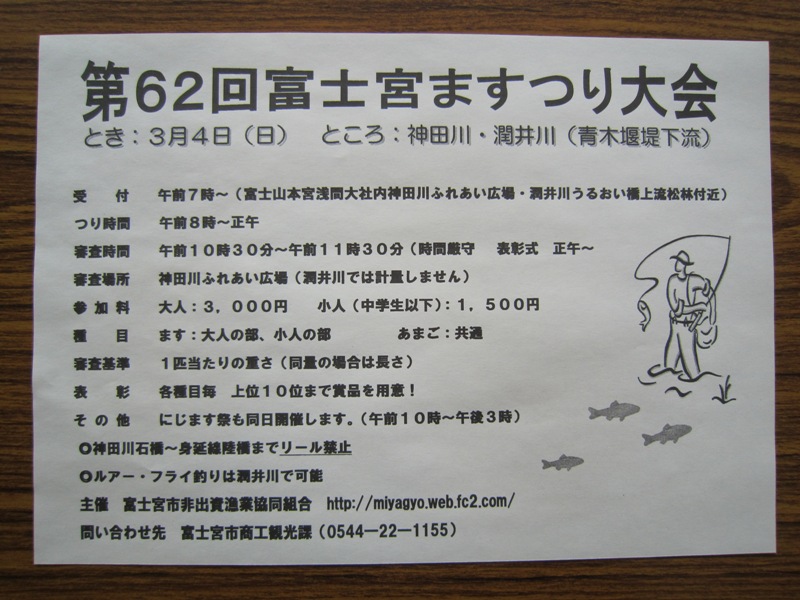 第62回富士宮ますつり大会
とき：3月4日（日）　ところ：神田川・潤井川（青木堰堤下流）
受　付　午前7時～（富士山本宮浅間大社内神田川ふれあい広場・潤井川うるおい橋上流松林付近）
つり時間　午前8時～正午
審査時間　午前10時30分～午前11時30分（時間厳守　表彰式　正午～
審査場所　神田川ふれあい広場（潤井川では計量しません）
参加料　大人：3，000円　小人（中学生以下）：1，500円
種　目　ます：大人の部、小人の部　あまご：共通
審査基準　1匹当たりの重さ（同量の場合は長さ）
表　彰　各種目毎　上位10位まで賞品を用意！
その他　にじます祭も同日開催します。（午前10時～午後3時）
○神田川石橋～身延線陸橋までリール禁止
○ルアー・フライ釣りは潤井川で可能
主催　富士宮市非出資漁業協同組合　http://miyagyo.web.fc2.com/
問い合わせ先　富士宮市商工観光課（0544―22―1155）